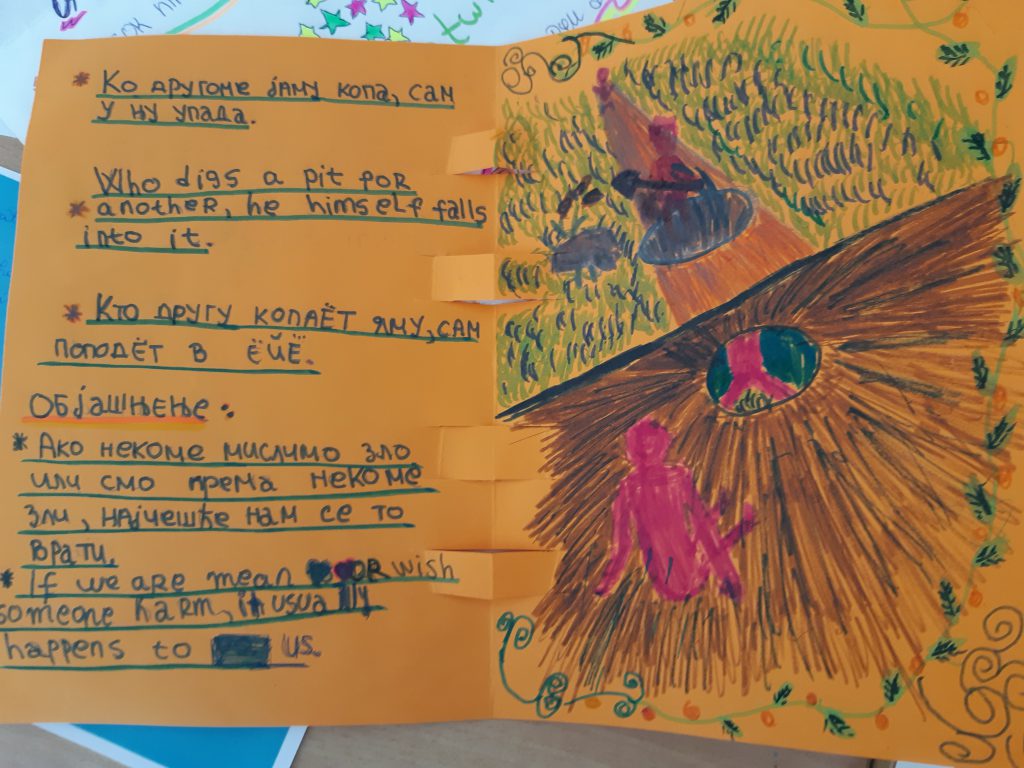 * Ко другоме јаму копа, сам
у њу упада.
Who digs a pit for
* another, he himself falls
into it.
* Кто другу копаёт яму, сам
поподёт в ёйё.
Објашњење:
* Ако некоме мислимо зло
или смо према некоме
зли, најчешће нам се то
врати.
* If we are mean or wish
someone harm, it usually
happens to us.